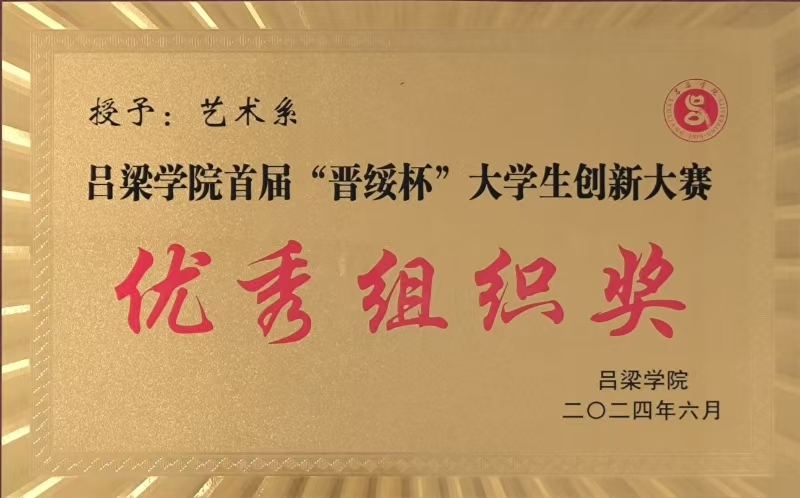 授予：艺术系
吕梁学院首届“晋绥杯”大学生创新大赛
优秀组织奖
吕梁学院
二〇二四年六月